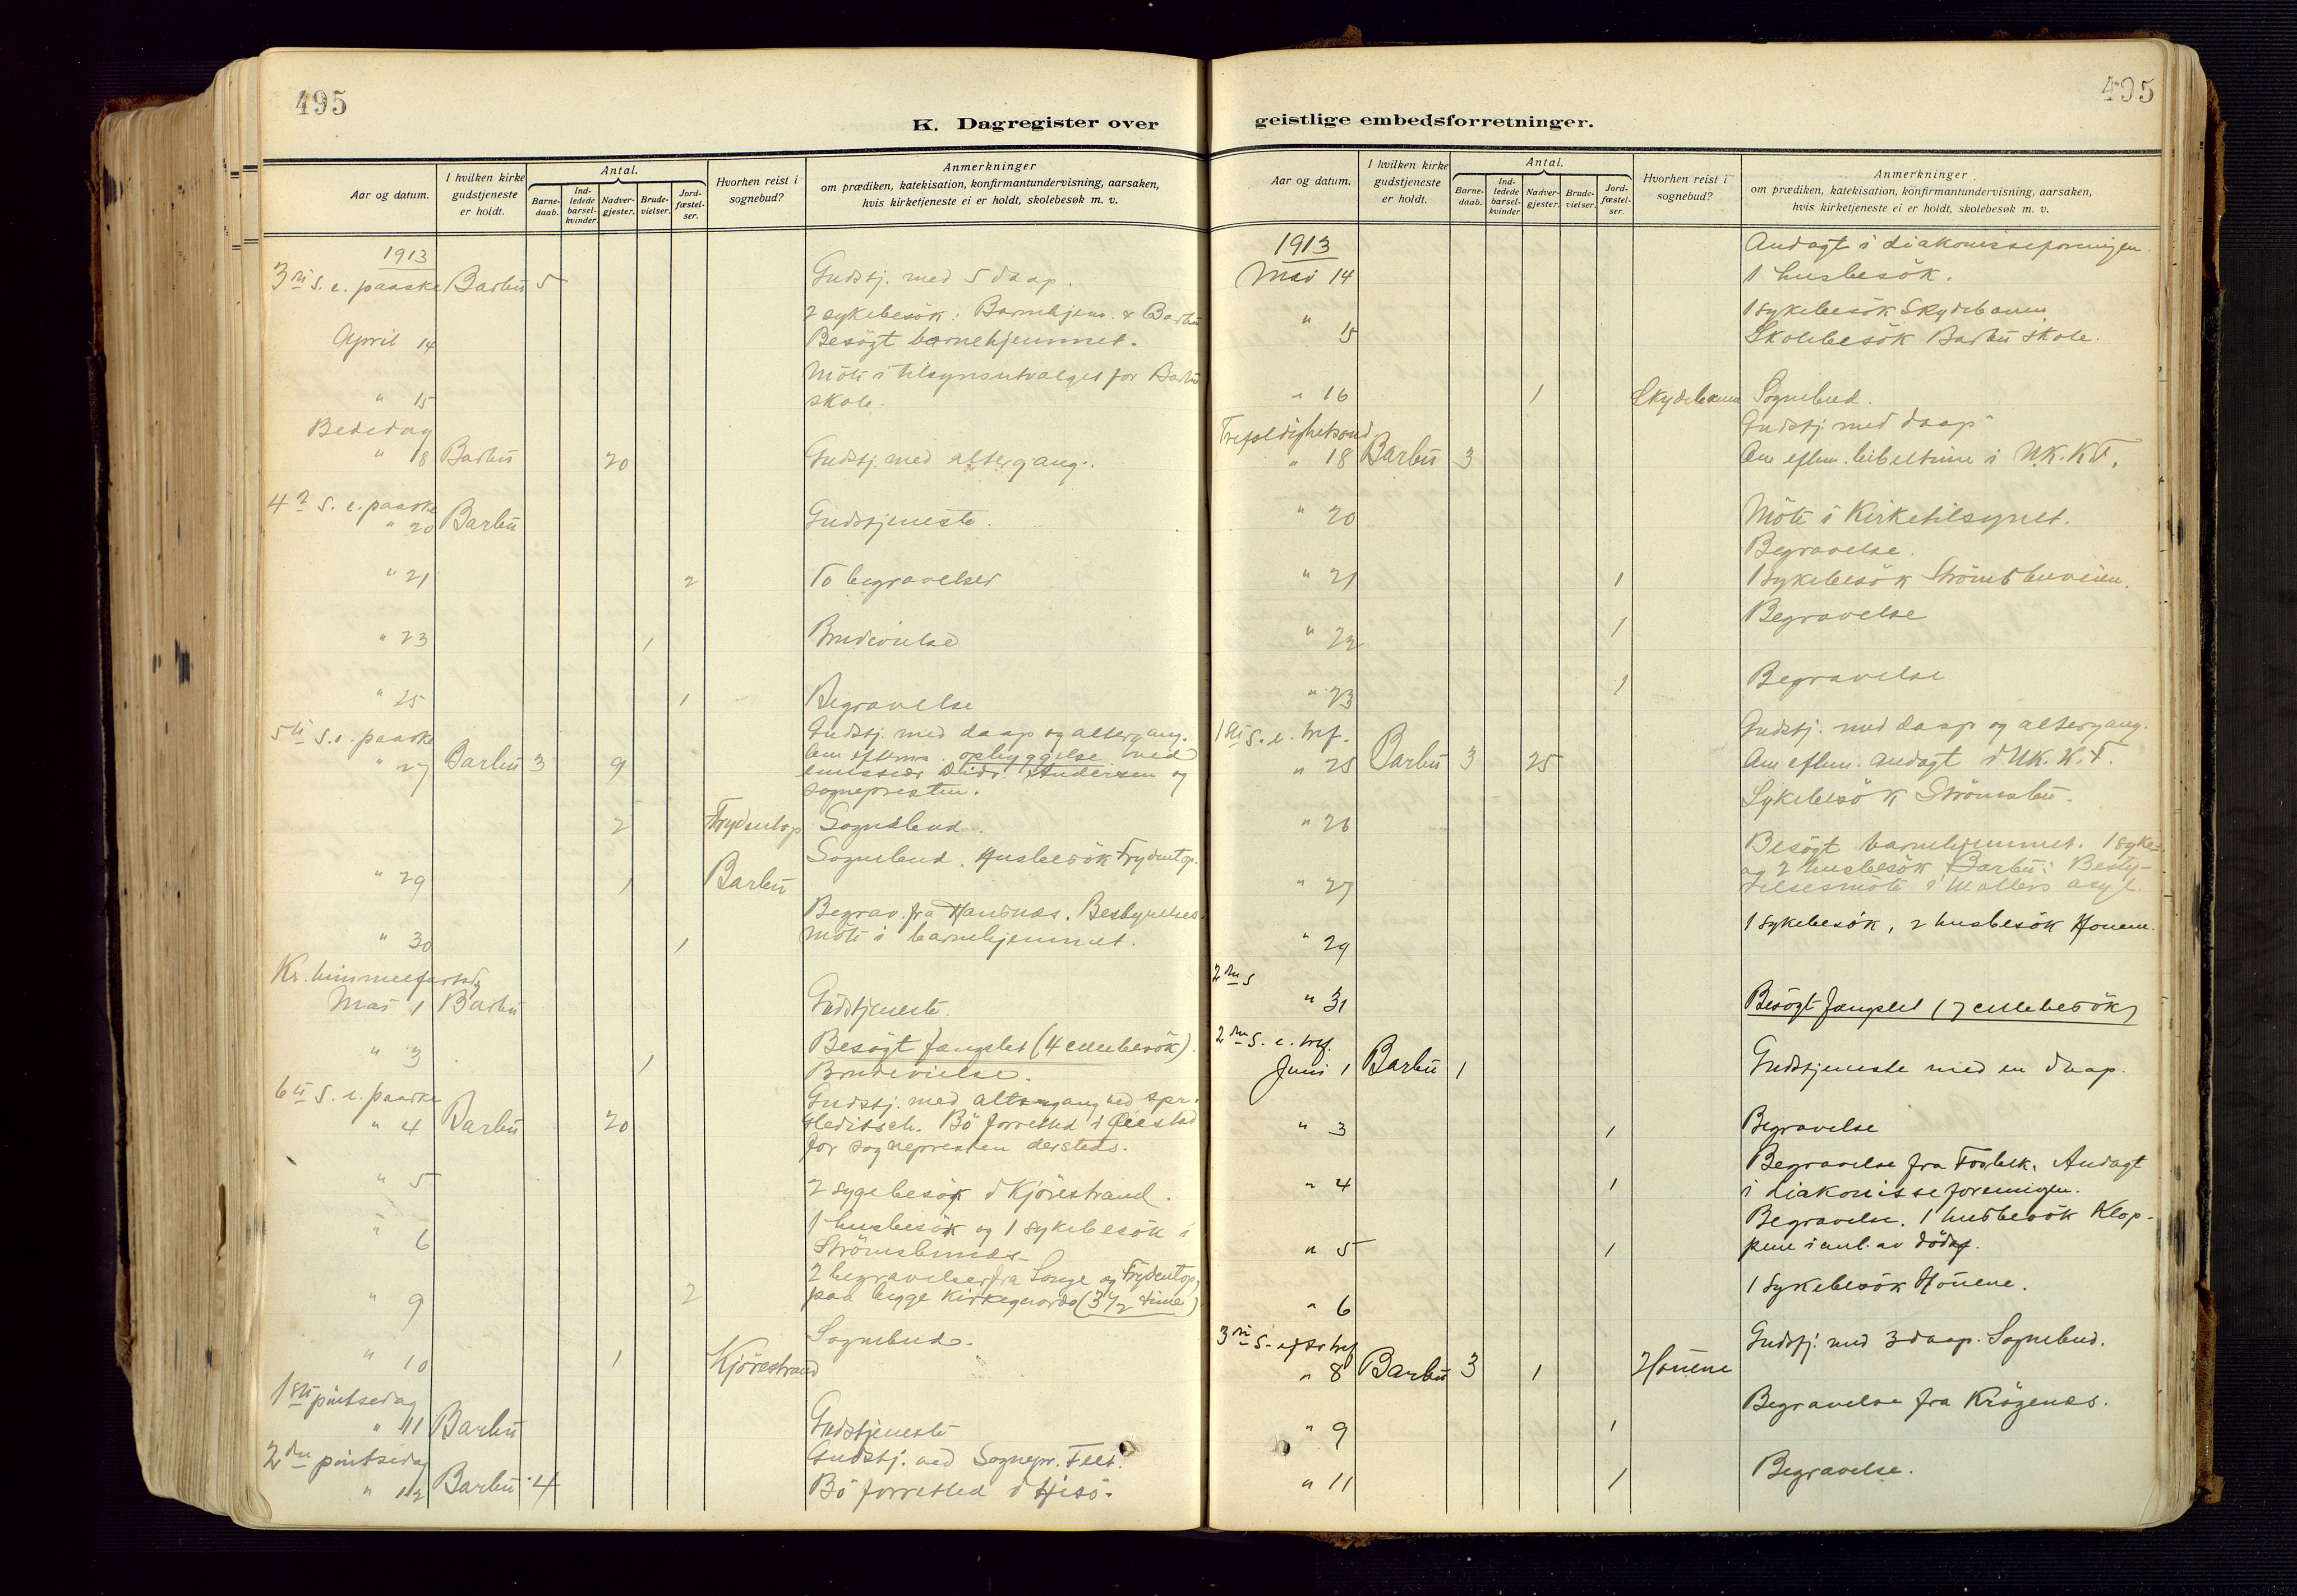 495
K. Dagregister over
Aar og datum.
I hvilken kirke gudstjeneste er holdt.
Antal.
Barne-daab.
Ind-ledede barsel-kvinder.
Nadver-gjester.
Brude-vielser.
Jord-fæstel-ser.
Hvorhen reist i sognebud?
Anmerkninger
om prædiken, katekisation, konfirmantundervisning, aarsaken,
hvis kirketjeneste ei er holdt, skolebesøk m. v.
1913
3die S. e. paaske Barbu 5 Gudstj. med 5 daap.
2 sykebesök: Barnehjem. & Barbu
April 14 Besögt barnehjemmet.
Möte i tilsynsutvalget for Barbu
" 15 skole.
Bededag
" 18 Barbu 20 Gudstj. med altergang.
4de S. e. paaske
" 20 Barbu Gudstjeneste.
" 21 2 To begravelser
" 23 1 Brudevielse
" 25 1 Begravelse
5te S. e. paaske Gudstj. med daap og altergang.
" 27 Barbu 3 9 Om efterm. opbyggelse ved
emissær Andersen og
sognepresten.
2 Frydentop Sognebud.
Sognebud. Husbesök Frydentop.
" 29 1 Barbu
Begrav. fra Havnæs. Bestyrelses-
" 30 1 möte i barnehjemmet.
Kr. himmelfartsdg
Mai 1 Barbu Gudstjeneste.
" 3 1 Besögt fængslet (4 cellebesök).
Brudevielse.
6te S. e. paaske Gudstj. med altergang ved spr.
" 4 Barbu 20 Gleditsch. Bö forretted i Öiestad
for sognepresten dersteds.
" 5 2 sygebesök i Kjörestrand.
1 husbesök og 1 sykebesök i
" 6 Strömsbunæs
2 begravelser fra Longe og Frydentop,
" 9 2 paa begge kirkegaarde (3 1/2 time)
Sognebud.
" 10 1 Kjörestrand
1ste pintsedag
" 11 Barbu Gudstjeneste
2den pintsedag Gudstj. ved Sognepr. Feet.
" 12 Barbu 4 Bö forretted i Hisö.
495
geistlige embedsforretninger.
Aar og datum.
I hvilken kirke gudstjeneste er holdt.
Antal.
Barne-daab.
Ind-ledede barsel-kvinder.
Nadver-gjester.
Brude-vielser.
Jord-fæstel-ser.
Hvorhen reist i sognebud?
Anmerkninger
om prædiken, katekisation, konfirmantundervisning, aarsaken,
hvis kirketjeneste ei er holdt, skolebesøk m. v.
1913 Andagt i diakonisseforeningen.
Mai 14 1 husbesök.
1 sykebesök Skydebanen
" 15 Skolebesök Barbu skole.
" 16 1 Skydebanen Sognebud.
Trefoldighetssönd Gudstj. med daap
" 18 Barbu 3 Om efterm. bibeltime i U.K.K.F.
" 20 Möte i Kirketilsynet.
Begravelse.
" 21 1 1 sykebesök Strömsbuveien.
" 22 1 Begravelse
" 23 1 Begravelse
1ste S. e. tref. Gudstj. med daap og altergang.
" 25 Barbu 3 25 Om efterm. andagt i U.K.K.F.
" 26 Sykebesök Strömsbu.
Besögt barnehjemmet. 1 syke-
og 2 husbesök Barbu: Besty-
" 27 relsesmöte i Møllers asyl.
1 sykebesök, 2 husbesök Houene.
" 29
2den S
" 31 Besögt fængslet (7 cellebesök)
2den S. e. tref.
Juni 1 Barbu 1 Gudstjeneste med en daap.
" 3 1 Begravelse
Begravelse fra Fosbek. Andagt
" 4 1 i diakonisseforeningen.
Begravelse. 1 husbesök Klop-
" 5 1 pene i anl. av dödsf.
1 sykebesök Houene.
" 6
3die S. efter tref Gudstj. med 3 daap. Sognebud.
" 8 Barbu 3 1 Houene
Begravelse fra Krögenæs.
" 9 1
" 11 1 Begravelse.